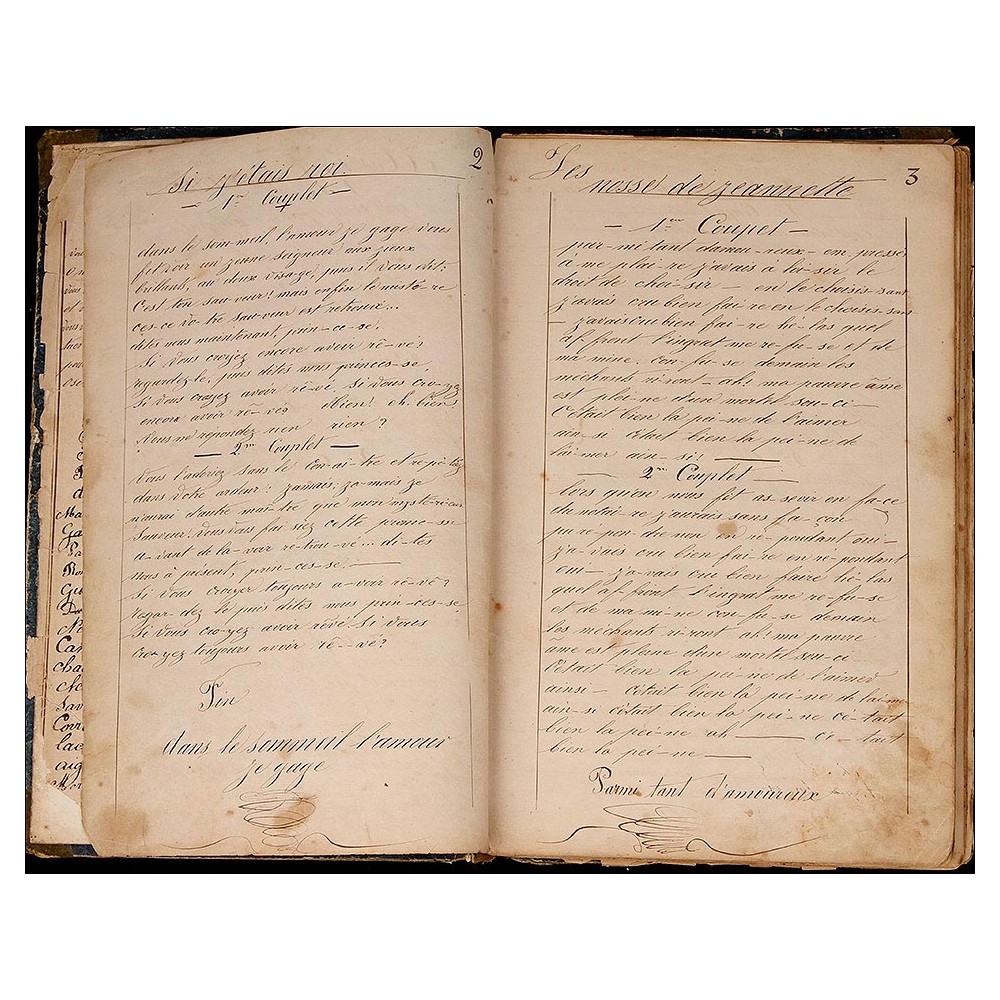 2
Si j'étais roi.
— 1er Couplet —
dans le som-meil, l'amour je gage vous
fit voir un jeune seigneur aux yeux
brillants, au doux visage, puis il vous dit:
C'est ton sau-veur! mais enfin le mistè-re
ces ce vo-tre sau-veur est retrouvé...
dites nous maintenant, prin-ce-se!
Si vous croyez encore avoir rê-vé?
regardez-le, puis dites nous princes-se,
Si vous croyez avoir rê-vé, si vous cro-yez
encore avoir rê-vé? Ebien! eh bien!
Vous ne répondez rien rien?
— 2me Couplet —
Vous l'adoriez sans le con-ai-tre et répé-tiez
dans votre ardeur: jamais, ja-mais je
n'aurai d'autre maî-tre que mon mysté-rieux
Sauveur! Vous fai siez cette prome-sse
a-vant de la-voir re-trou-vé... di-tes
nous à présent, prin-ces-se! —
Si vous croyez toujours a-voir rê-vé?
regar-dez le puis dites nous prin-ces-se
Si vous cro-yez avoir rêvé Si vous
cro-yez toujours avoir rê--vé?
Fin
dans le sommeil l'amour
je gage
3
Les
nosse de jeannette
— 1er Coupet —
par-mi tant damou-reux- em-pressé
à me plai-re j'avais à loi-sir le
droit de choi-sir — en le choisis-sant
j'avais cru bien fai-re en le choisis-sant
— j'avais cru bien fai-re hé-las quel
af-front l'ingrat me re-fu-se et de
ma mine con-fu-se demain les
méchants ri-ront — ah! ma pauvre âme
est plei-ne d'un mortel sou-ci —
C'était bien la pei-ne de l'aimer
ain-si c'était bien la pei-ne de
l'ai-mer ain-si! —
2me Couplet —
lors qu'on nous fit as-seoir en fa-ce
du notai-re j'aurais sans fa-çon
pu ré-pon-dre non en ré-pondant oui-
j'a-vais cru bien fai-re en ré-pondant
oui — j'a-vais cru bien faire hé-las
quel af-front l'ingrat me re-fu-se
et de ma mi-ne con-fu-se demain
les méchants ri-ront ah! ma pauvre
âme est pleine d'un mortel sou-ci-
C'était bien la pei-ne de l'aimer
ainsi — c'était bien la pei-ne de l'ai-mer
ain-si c'était bien la pei-ne cé-tait
bien la pei-ne ah — cé-tait
bien la pei-ne —
Parmi tant d'amoureux